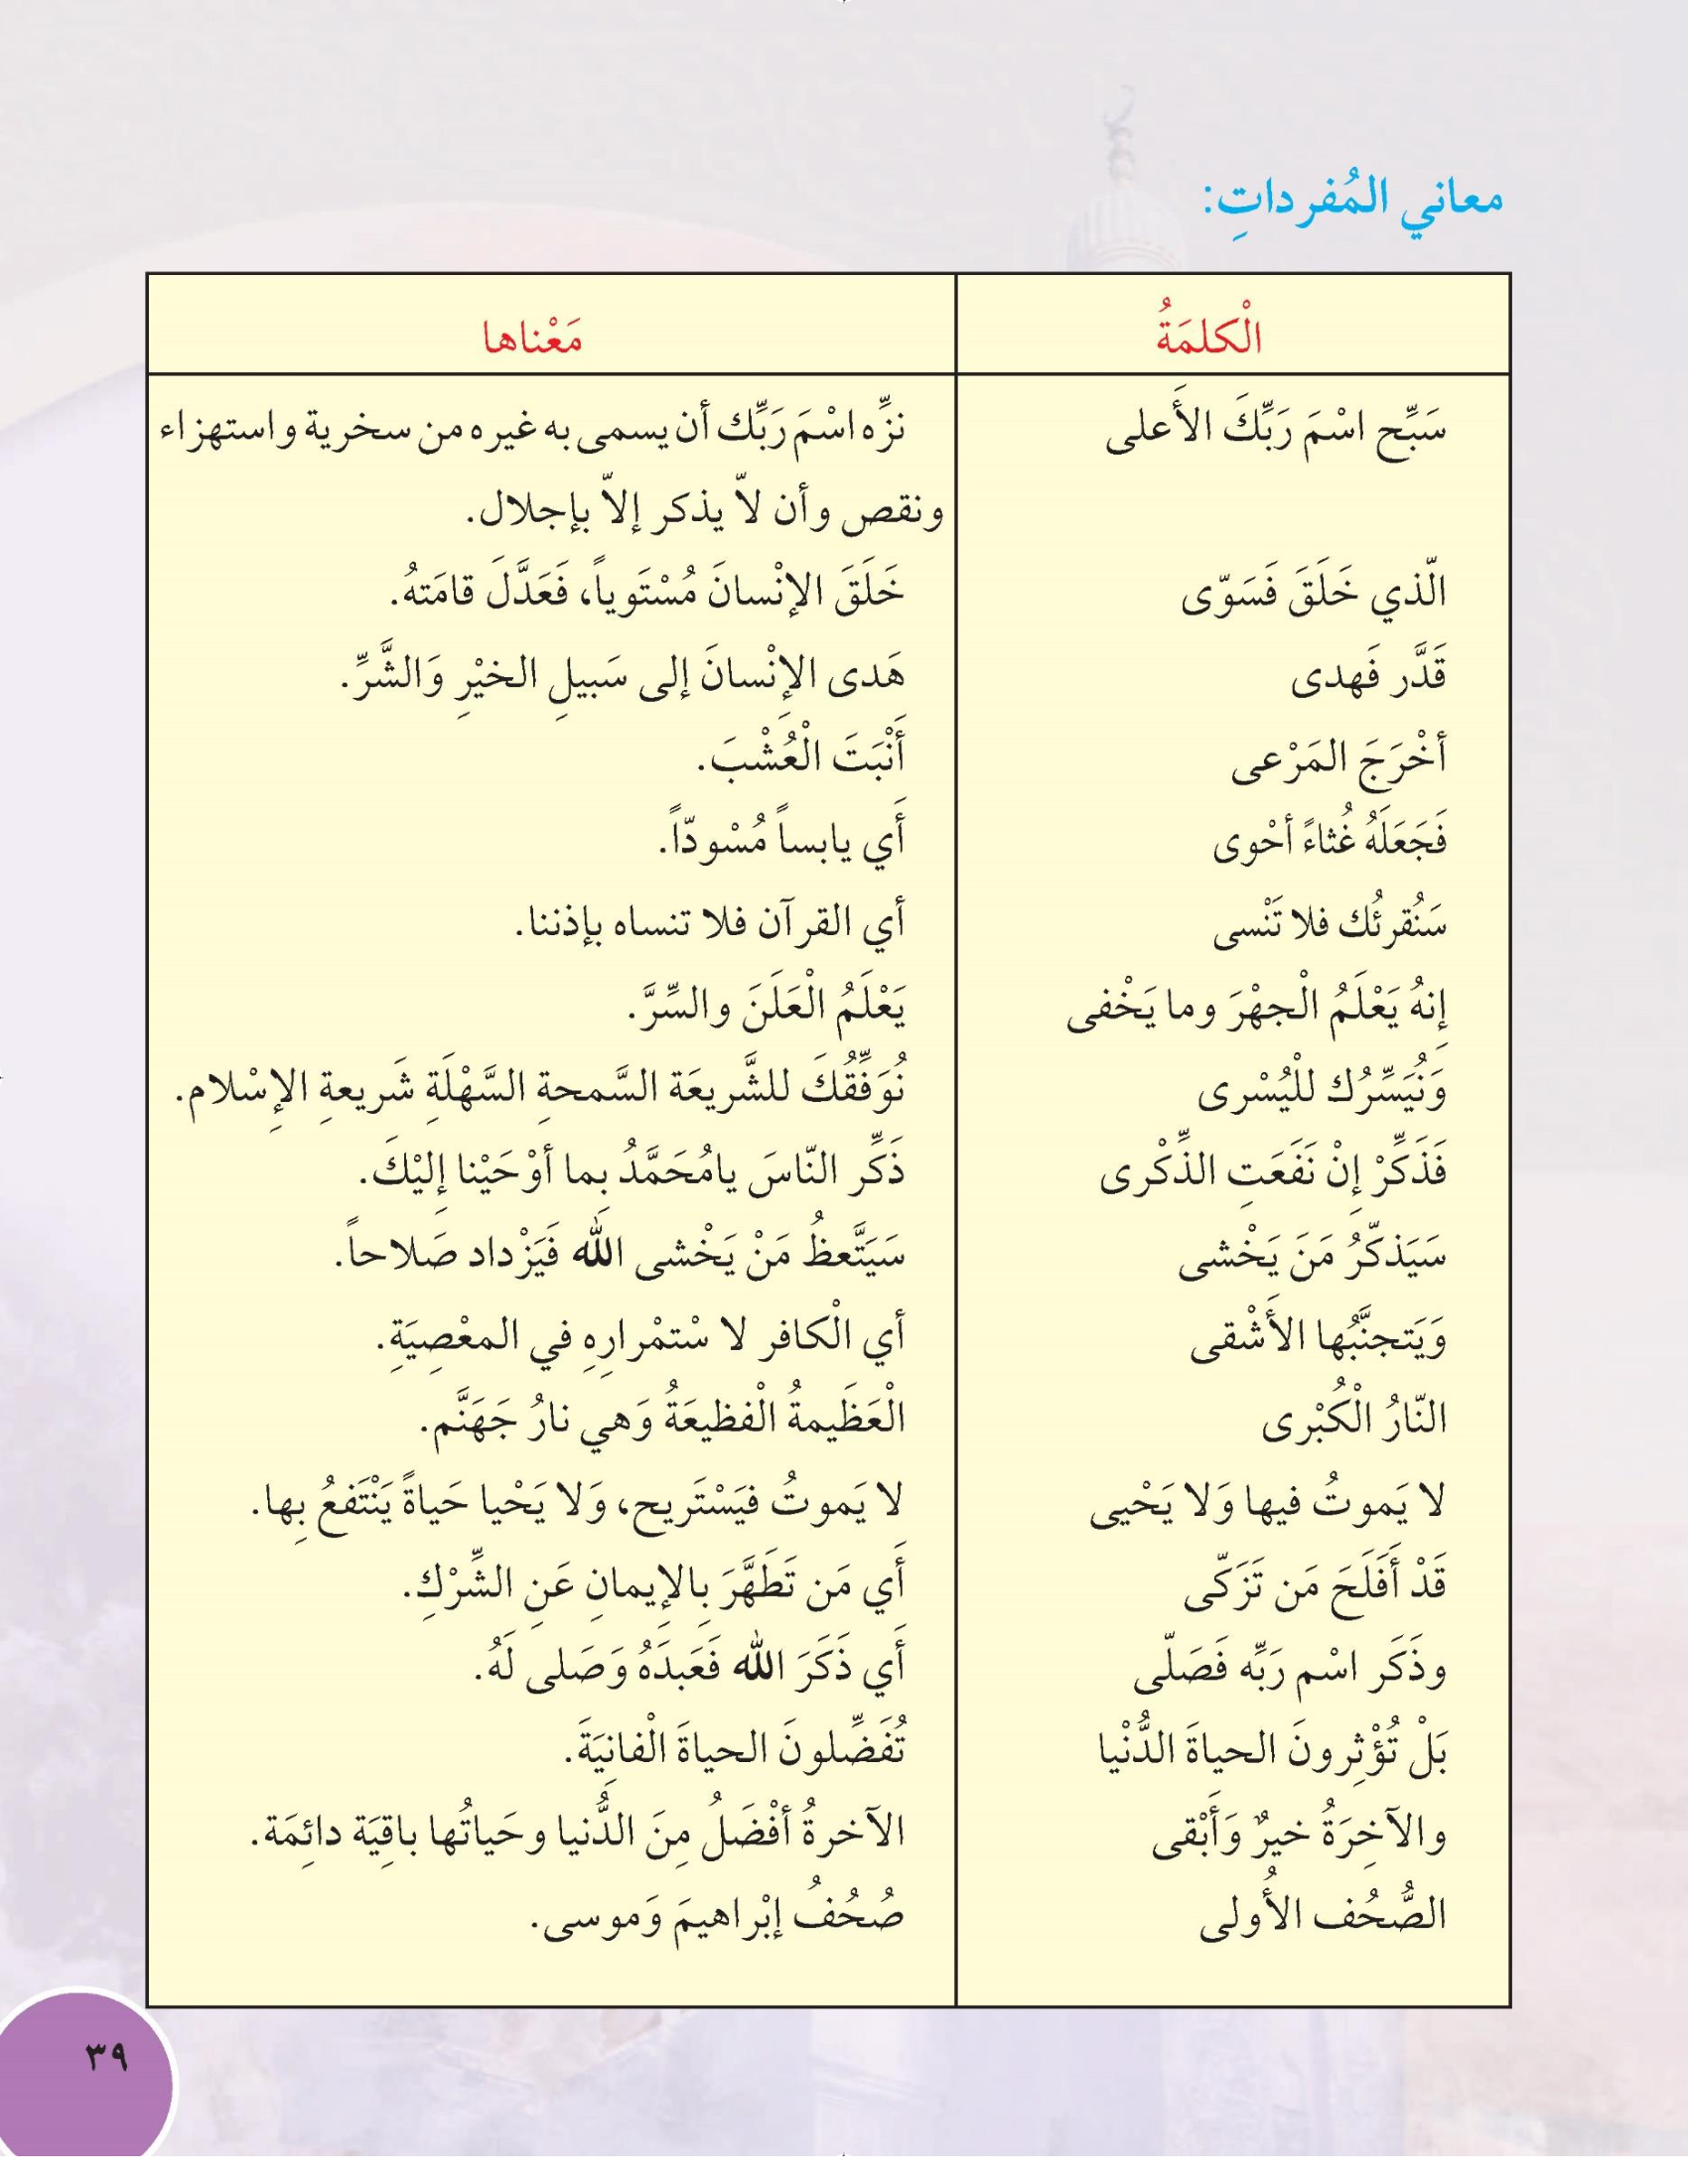 معاني المُفرداتِ:
الْكلمَةُ	مَعْناها
سَبِّح اسْمَ رَبِّكَ الأَعلى	نزِّه اسْمَ رَبِّك أن يسمى به غيره من سخرية واستهزاء
ونقص وأن لاّ يذكر إلاّ بإجلال.
الّذي خَلَقَ فَسَوّى	خَلَقَ الإنْسانَ مُسْتَوياً، فَعَدَّلَ قامَتهُ.
قَدَّر فَهدى	هَدى الإِنْسانَ إلى سَبيلِ الخيْرِ وَالشَّرِّ.
أخْرَجَ المَرْعى	أَنْبَتَ الْعُشْبَ.
فَجَعَلَهُ غُثاءً أحْوى	أَي يابساً مُسْودّاً.
سَنُقرئُك فلا تَنْسى	أي القرآن فلا تنساه بإذننا.
إِنهُ يَعْلَمُ الْجهْرَ وما يَخْفى	يَعْلَمُ الْعَلَنَ والسِّرَّ.
وَنُيَسِّرُك للْيُسْرى	نُوَفِّقُكَ للشَّريعَة السَّمحةِ السَّهْلَةِ شَريعةِ الإِسْلام.
فَذَكِّرْ إِنْ نَفَعَتِ الذِّكْرى	ذَكِّر النّاسَ يامُحَمَّدُ بِما أوْحَيْنا إِليْكَ.
سَيَذكّرُ مَنَ يَخْشى	سَيَتَّعظُ مَنْ يَخْشى الله فَيَزْداد صَلاحاً.
وَيَتجنَّبُها الأَشْقى	أي الْكافر لا سْتمْرارِهِ في المعْصِيَةِ.
النّارُ الْكُبْرى	الْعَظَيمةُ الْفظيعَةُ وَهي نارُ جَهَنَّم.
لا يَموتُ فيها وَلا يَحْيى	لا يَموتُ فيَسْتَريح، وَلا يَحْيا حَياةً يَنْتَفعُ بِها.
قَدْ أَفَلَحَ مَن تَزَكّى	أَي مَن تَطَهَّرَ بِالإِيمانِ عَنِ الشِّرْكِ.
وذَكَر اسْم رَبِّه فَصَلّى	أَي ذَكَرَ الله فَعَبدَهُ وَصَلى لَهُ.
بَلْ تُؤْثِرونَ الحياةَ الدُّنْيا	تُفَضِّلونَ الحياةَ الْفانيَةَ.
والآخِرَةُ خيرٌ وَأَبْقى	الآخرةُ أفْضَلُ مِنَ الدُّنيا وحَياتُها باقيَة دائِمَة.
الصُّحُف الأُولى	صُحُفُ إبْراهيمَ وَموسى.
٣٩